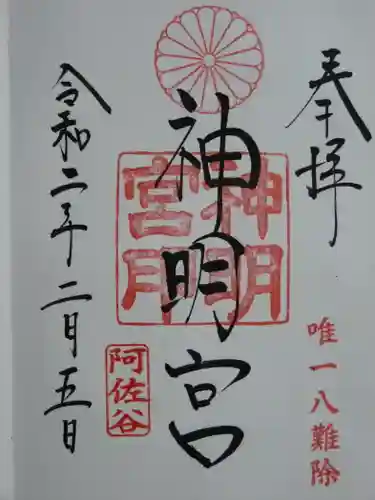 奉拝
唯一八難除
神明宮
神明宮
阿佐谷
令和二年二月五日